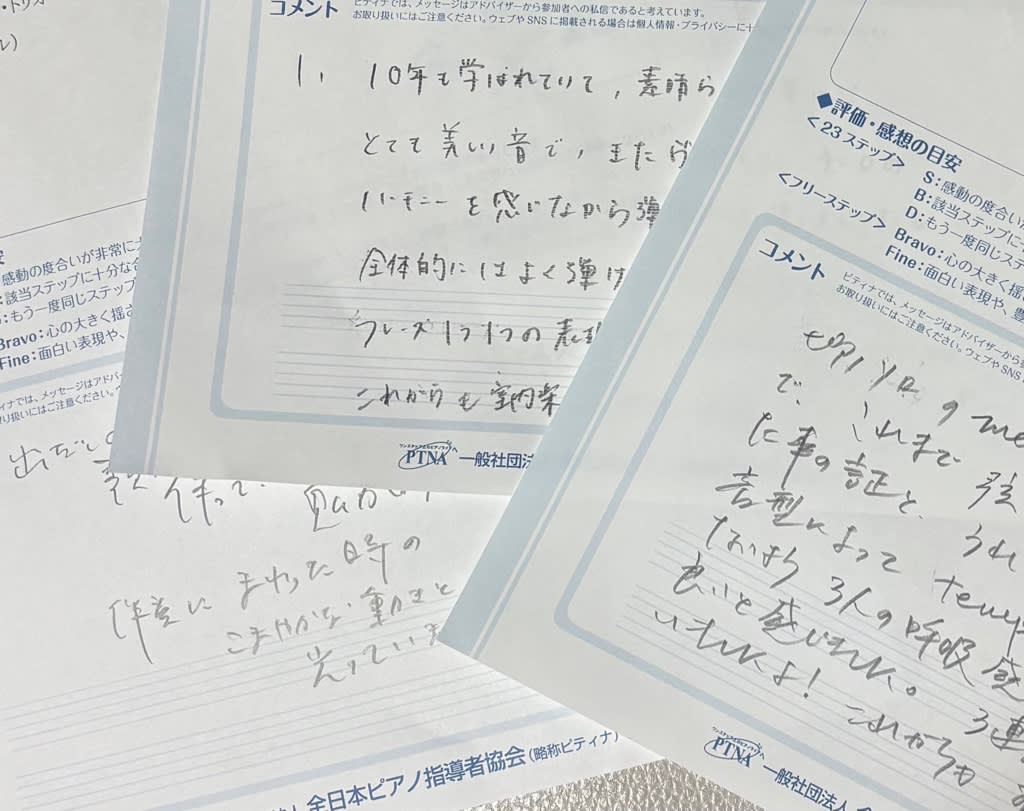 コメント
ピティナでは、メッセージはアドバイザーから参加者への私信であると考えています。
お取り扱いにはご注意ください。ウェブや SNS に掲載される場合は個人情報・プライバシーに十
1、10年も学ばれていて、素晴ら
とても美しい音で、また
ハーモニーを感じながら弾
全体的にはよく弾け
フレーズ1つ1つの表現
これからも室内楽
PTNA 一般社団法
◆評価・感想の目安
<23ステップ>
S:感動の度合いが
B:該当ステップに十
D:もう一度同じステ
<フリーステップ>
Bravo:心の大きく揺
Fine:面白い表現や、豊
コメント
ピティナでは、メッセージはアドバイザーから参
お取り扱いにはご注意ください。ウェブや SNS
ピアノソロの
で、これまで弾
た事の証と、うれ
音型によって temp
なはち 3人の呼吸感
良いと感じました。3連
いましたよ!これからも
PTNA 一般社団法人
感動の度合いが非常に
該当ステップに十分な
もう一度同じステップ
Bravo:心の大きく揺さ
Fine:面白い表現や、
ィナでは、メッセージはアドバ
り扱いにはご注意ください。
出だしの
作って、
まわった時の
こまやかな動きと
っていま
全日本ピアノ指導者協会(略称ピティナ)